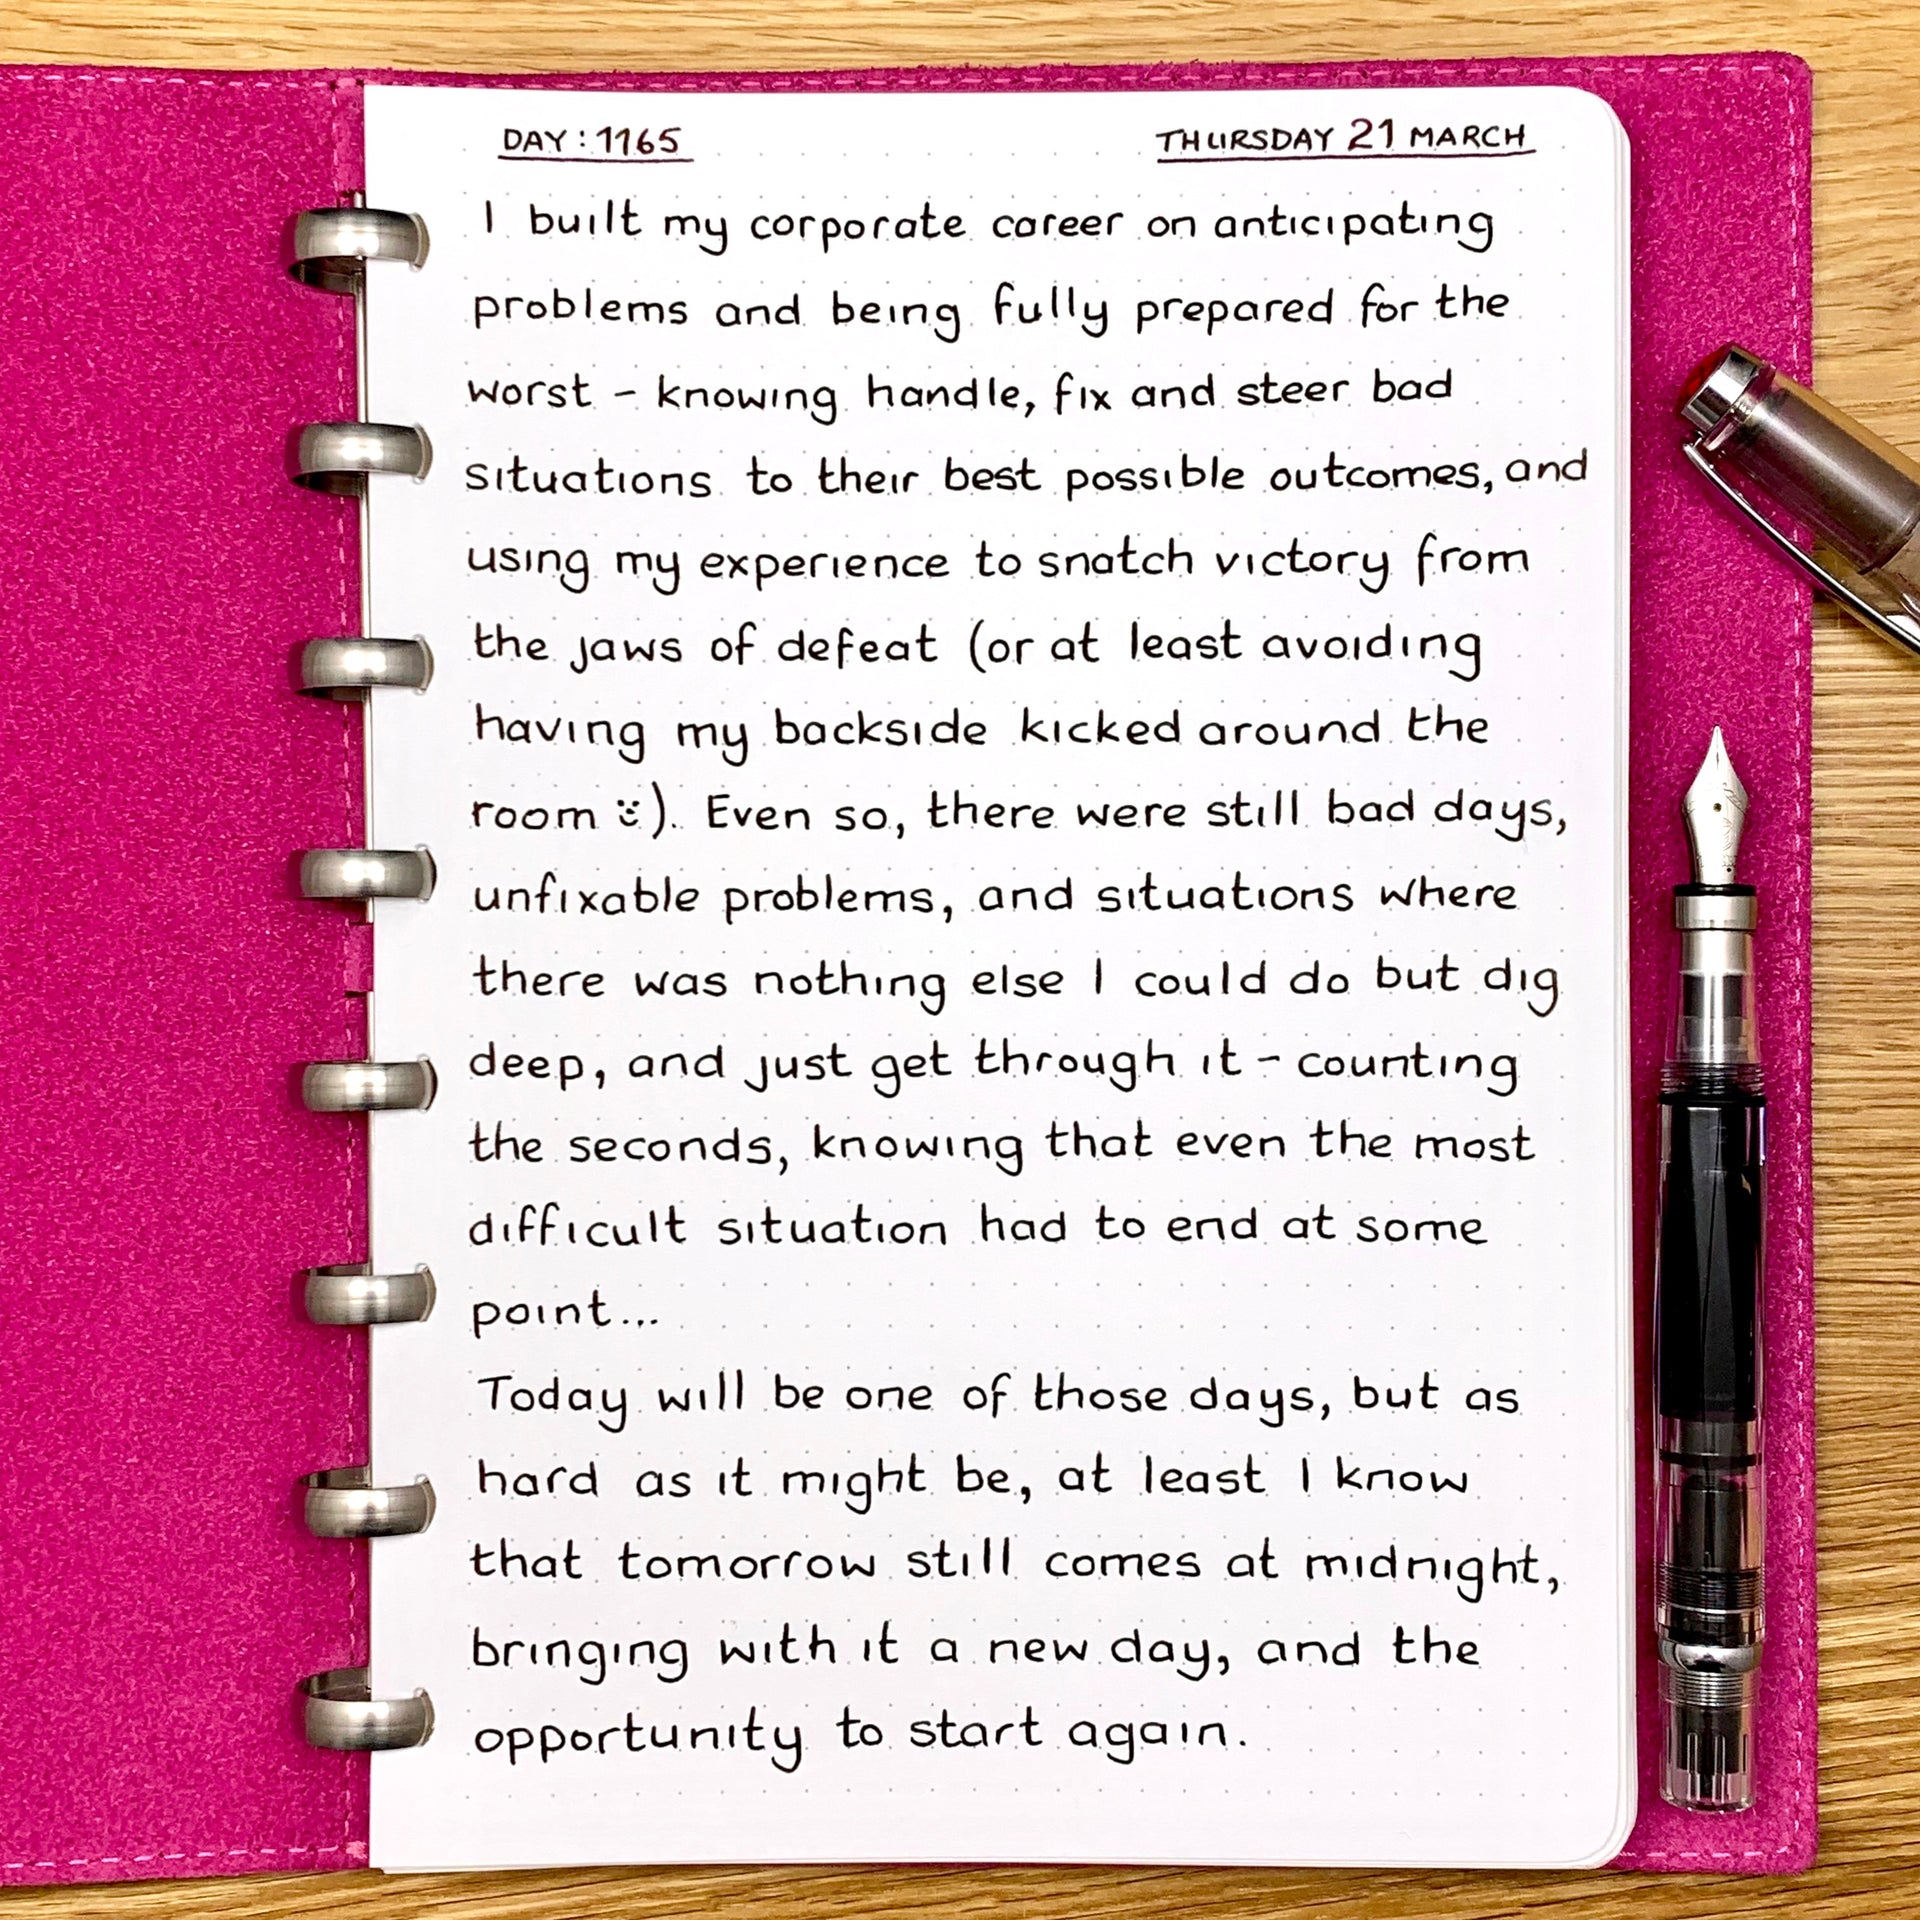 DAY: 1165
THURSDAY 21 MARCH
I built my corporate career on anticipating
problems and being fully prepared for the
worst - knowing handle, fix and steer bad
situations to their best possible outcomes, and
using my experience to snatch victory from
the jaws of defeat (or at least avoiding
having my backside kicked around the
room :)). Even so, there were still bad days,
unfixable problems, and situations where
there was nothing else I could do but dig
deep, and just get through it - counting
the seconds, knowing that even the most
difficult situation had to end at some
point...
Today will be one of those days, but as
hard as it might be, at least I know
that tomorrow still comes at midnight,
bringing with it a new day, and the
opportunity to start again.